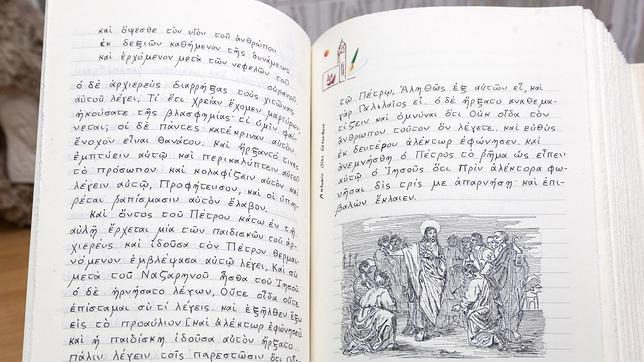 καὶ ὄψεσθε τὸν υἱὸν τοῦ ἀνθρώπου
ἐκ δεξιῶν καθήμενον τῆς δυνάμεως
καὶ ἐρχόμενον μετὰ τῶν νεφελῶν τοῦ
οὐρανοῦ
ὁ δὲ ἀρχιερεὺς διαρρήξας τοὺς χιτῶνας
αὐτοῦ λέγει, Τί ἔτι χρείαν ἔχομεν μαρτύρων·
ἠκούσατε τῆς βλασφημίας· τί ὑμῖν φαί-
νεται; οἱ δὲ πάντες κατέκριναν αὐτὸν
ἔνοχον εἶναι θανάτου. Καὶ ἤρξαντό τινες
ἐμπτύειν αὐτῷ καὶ περικαλύπτειν αὐτοῦ
τὸ πρόσωπον καὶ κολαφίζειν αὐτὸν καὶ
λέγειν αὐτῷ, Προφήτευσον, καὶ οἱ ὑπη-
ρέται ῥαπίσμασιν αὐτὸν ἔλαβον.
Καὶ ὄντος τοῦ Πέτρου κάτω ἐν τῇ
αὐλῇ ἔρχεται μία τῶν παιδισκῶν τοῦ ἀρ-
χιερέως καὶ ἰδοῦσα τὸν Πέτρον θερμαι-
νόμενον ἐμβλέψασα αὐτῷ λέγει, Καὶ σὺ
μετὰ τοῦ Ναζαρηνοῦ ἦσθα τοῦ Ἰησοῦ.
ὁ δὲ ἠρνήσατο λέγων, Οὔτε οἶδα οὔτε
ἐπίσταμαι σὺ τί λέγεις. καὶ ἐξῆλθεν ἔξω
εἰς τὸ προαύλιον [καὶ ἀλέκτωρ ἐφώνησεν
καὶ ἡ παιδίσκη ἰδοῦσα αὐτὸν ἤρξατο
πάλιν λέγειν τοῖς παρεστῶσιν ὅτι
τῷ Πέτρῳ, Ἀληθῶς ἐξ αὐτῶν εἶ, καὶ
γὰρ Γαλιλαῖος εἶ. ὁ δὲ ἤρξατο ἀναθεμα-
τίζειν καὶ ὀμνύναι ὅτι Οὐκ οἶδα τὸν
ἄνθρωπον τοῦτον ὃν λέγετε. καὶ εὐθὺς
ἐκ δευτέρου ἀλέκτωρ ἐφώνησεν. καὶ
ἀνεμνήσθη ὁ Πέτρος τὸ ῥῆμα ὡς εἶπεν
αὐτῷ ὁ Ἰησοῦς ὅτι Πρὶν ἀλέκτορα φω-
νῆσαι δὶς τρίς με ἀπαρνήσῃ· καὶ ἐπι-
βαλὼν ἔκλαιεν.